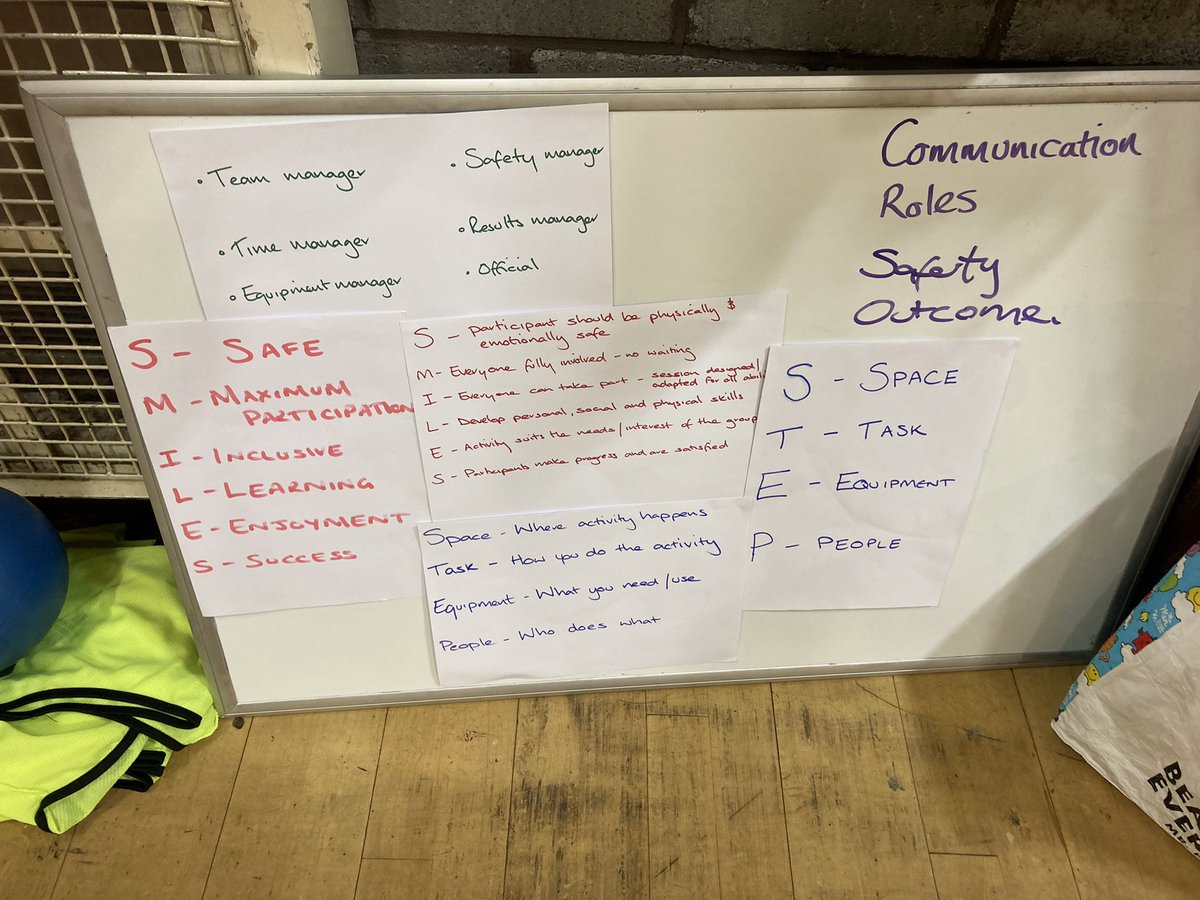 • Team manager
• Time manager
• Equipment manager
• Safety manager
• Results manager
• Official
Communication
Roles
Safety
Outcome.
S - SAFE
M - MAXIMUM
PARTICIPATION
I - INCLUSIVE
L - LEARNING
E - ENJOYMENT
S - SUCCESS
S - participant should be physically &
emotionally safe
M - Everyone fully involved - no waiting
I - Everyone can take part - session designed/
adapted for all
L - Develop personal, social and physical skills
E - Activity suits the needs/interest of the group
S - Participants make progress and are satisfied
S - SPACE
T - TASK
E - EQUIPMENT
P - PEOPLE
Space - Where activity happens
Task - How you do the activity
Equipment - What you need/use
People - Who does what